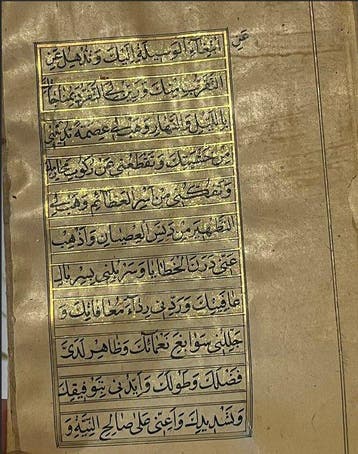 عَنِ
ابْتِغَاءِ الْوَسِيلَةِ إِلَيْكَ وَتُذْهِلُ عَنِ
التَّقَرُّبِ مِنْكَ وَزَيِّنْ لِيَ التَّفَرُّدَ
بِاللَّيْلِ وَالنَّهَارِ وَهَبْ لِي عِصْمَةً تُدْنِينِي
مِنْ خَشْيَتِكَ وَتَقْطَعُنِي عَنْ رُكُوبِ
وَتَفُكَّنِي مِنْ أَسْرِ الْعَظَائِمِ وَهَبْ لِيَ
التَّطْهِيرَ مِنْ دَنَسِ الْعِصْيَانِ وَأَذْهِبْ
عَنِّي دَرَنَ الْخَطَايَا وَسَرْبِلْنِي بِسِرْبَالِ
عَافِيَتِكَ وَرَدِّنِي رِدَاءَ مُعَافَاتِكَ وَ
جَلِّلْنِي سَوَابِغَ نَعْمَائِكَ وَظَاهِرْ لَدَيَّ
فَضْلَكَ وَطَوْلَكَ وَأَيِّدْنِي بِتَوْفِيقِكَ
وَتَسْدِيدِكَ وَأَعِنِّي عَلَى صَالِحِ النِّيَّةِ وَ